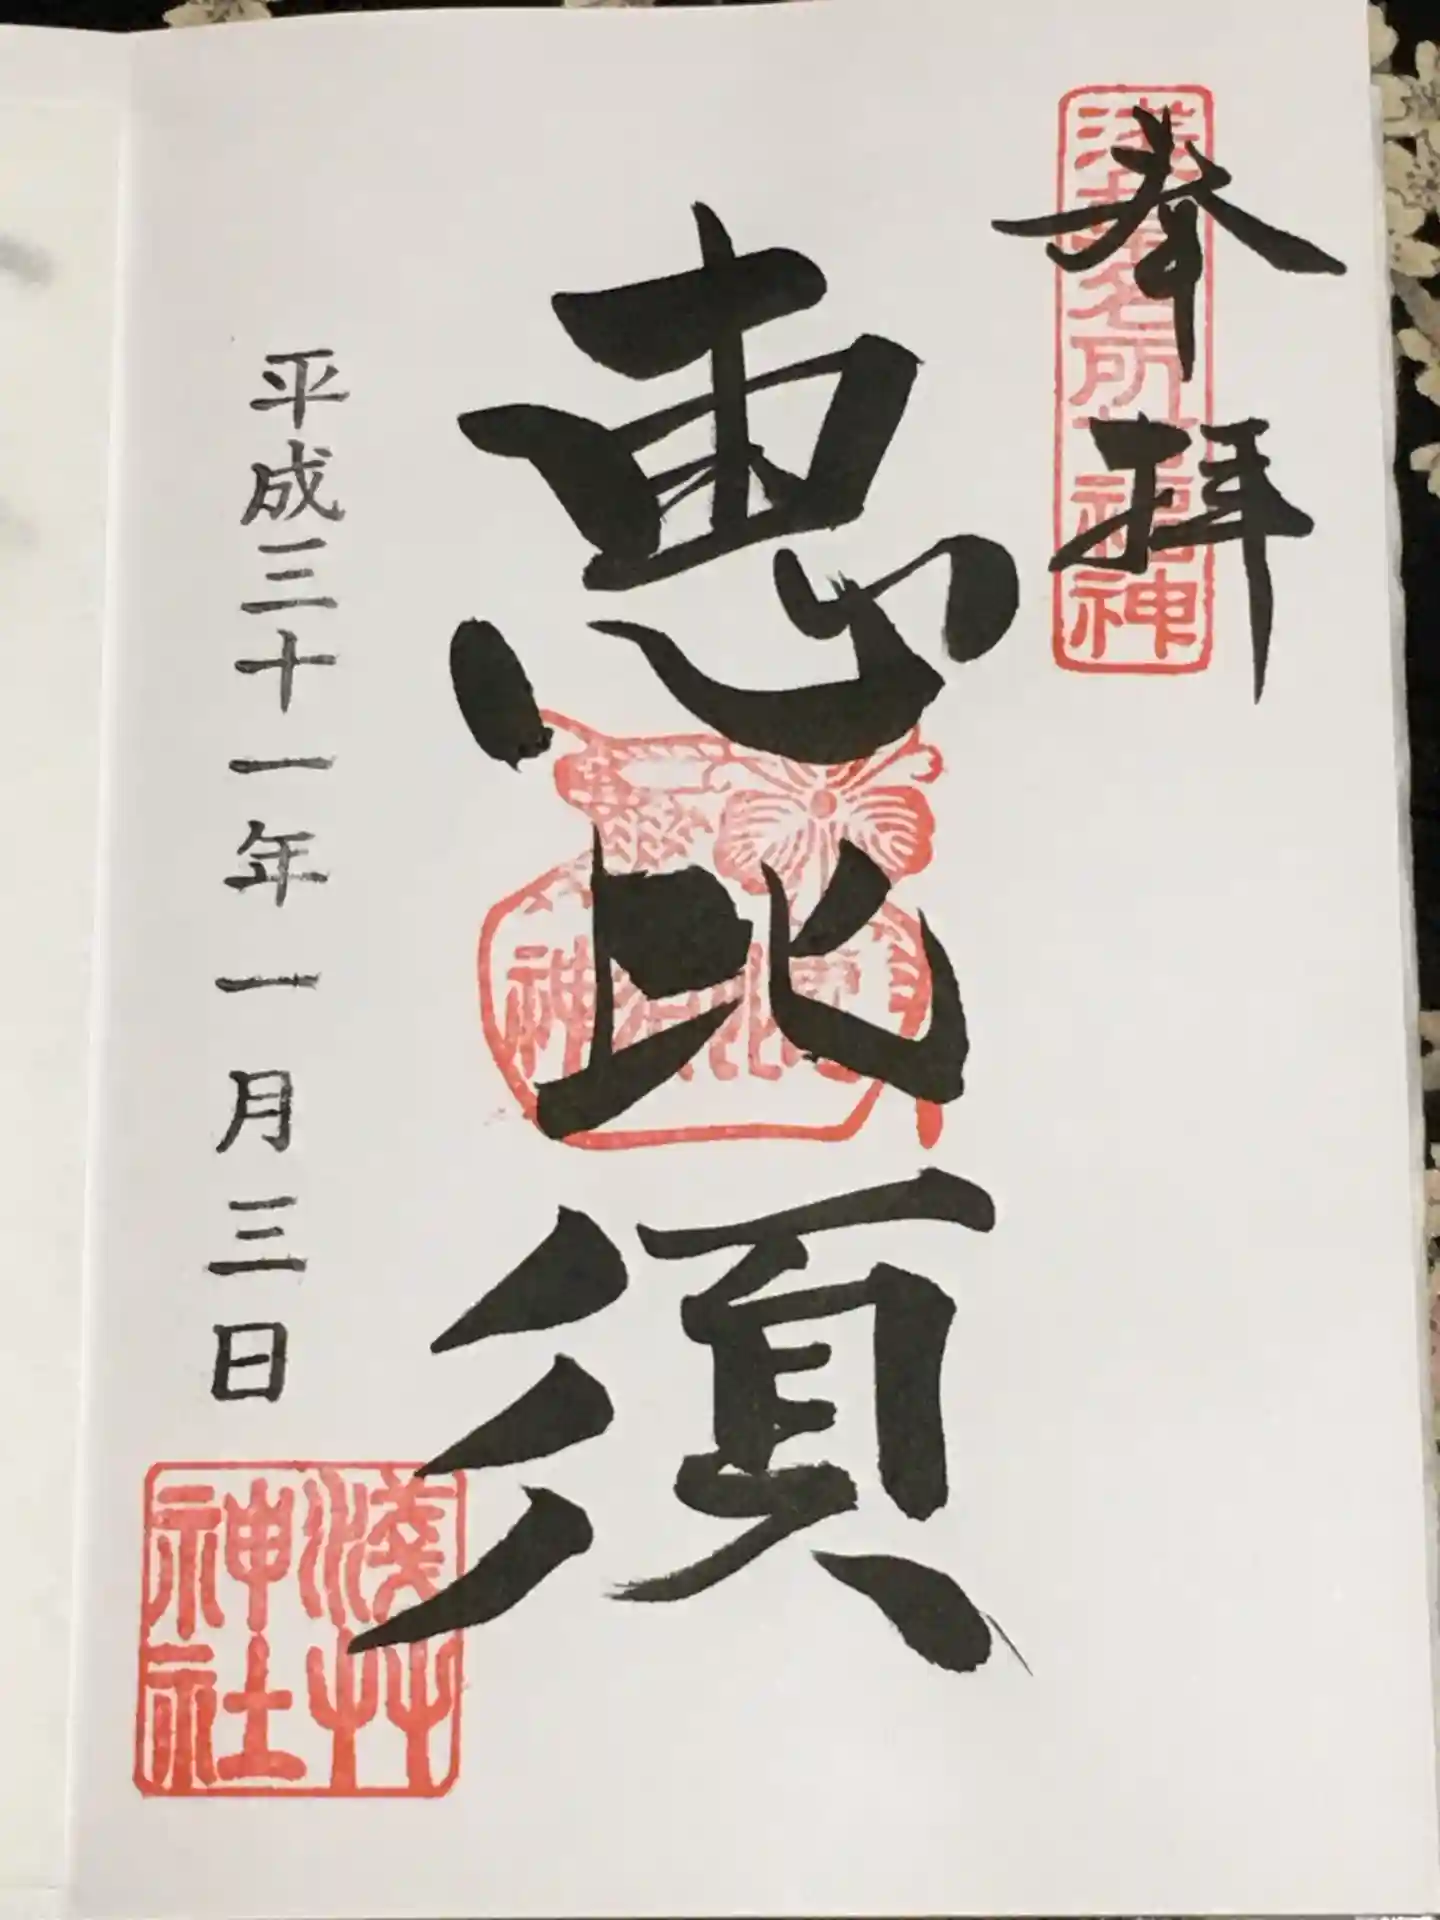 奉拝
浅草名所七福神
恵比須
恵比須神
平成三十一年一月三日
淺草神社